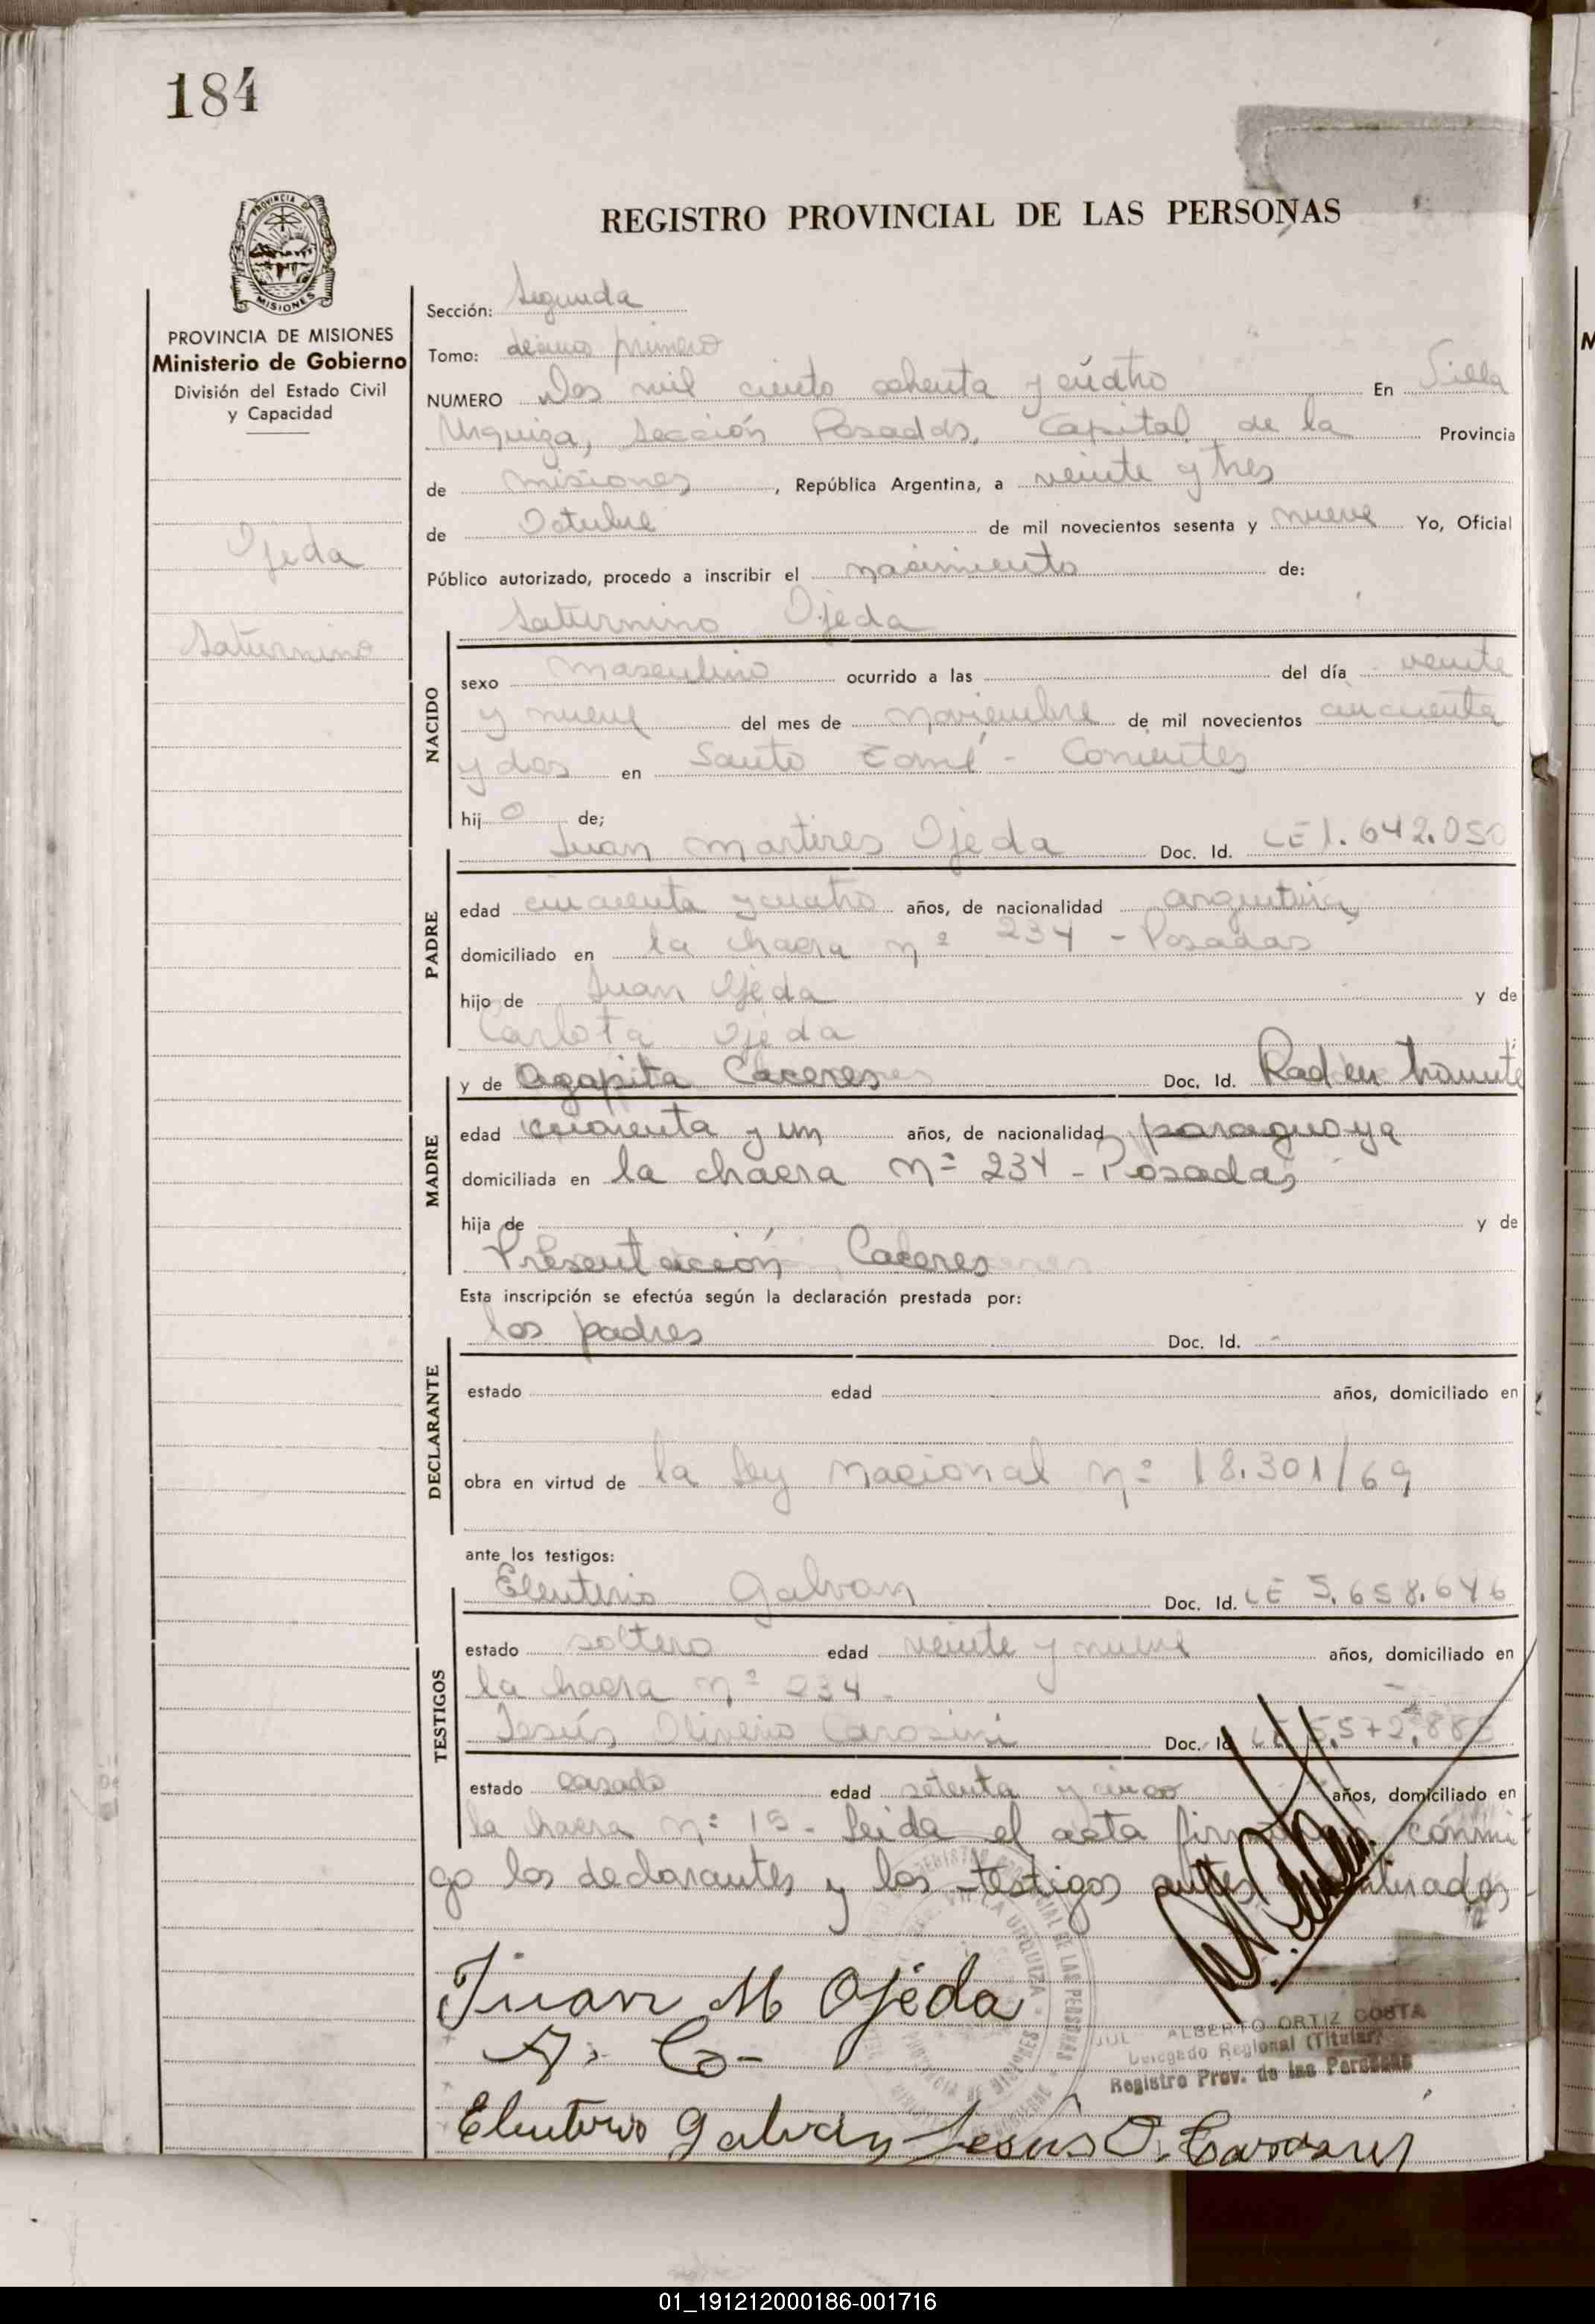 184
PROVINCIA DE MISIONES
MISIONES
PROVINCIA DE MISIONES
Ministerio de Gobierno
División del Estado Civil
y Capacidad
Ojeda
Saturnino
REGISTRO PROVINCIAL DE LAS PERSONAS
Sección: Segunda
Tomo: décimo primero
NUMERO Dos mil ciento ochenta y cuatro En Villa
Urquiza, Sección Posadas, Capital de la Provincia
de Misiones, República Argentina, a veinte y tres
de Octubre de mil novecientos sesenta y nueve Yo, Oficial
Público autorizado, procedo a inscribir el nacimiento de:
Saturnino Ojeda
NACIDO
sexo masculino ocurrido a las del día veinte
y nueve del mes de noviembre de mil novecientos cincuenta
y dos en Santo Tomé - Corrientes
hij o de;
Juan Martires Ojeda Doc. Id. LE 1.642.050
PADRE
edad cincuenta y cuatro años, de nacionalidad argentina,
domiciliado en la chacra nº 234 - Posadas
hijo de Juan Ojeda y de
Carlota Ojeda
y de Agapita Caceres Doc. Id. Rad en tramite
MADRE
edad cuarenta y un años, de nacionalidad paraguaya
domiciliada en la chacra nº 234 - Posadas
hija de y de
Presentación Caceres
Esta inscripción se efectúa según la declaración prestada por:
los padres Doc. Id. -
DECLARANTE
estado edad años, domiciliado en
obra en virtud de la Ley Nacional nº 18.301/69
ante los testigos:
Eleuterio Galvan Doc. Id. LE 5.658.646
TESTIGOS
estado soltero edad veinte y nueve años, domiciliado en
la chacra nº 234 -
Jesús Oliverio Carosini Doc. Id. LE 5.572.885
estado casado edad setenta y cinco años, domiciliado en
la chacra nº 15 - Leida el acta firman conmi
go los declarantes y los testigos antes
Juan M Ojeda
A. C-
JUL ALBERTO ORTIZ COSTA
Delegado Regional (Titular)
Registro Prov. de las Personas
Eleuterio Galvan Jesús O. Carosini
01_191212000186-001716